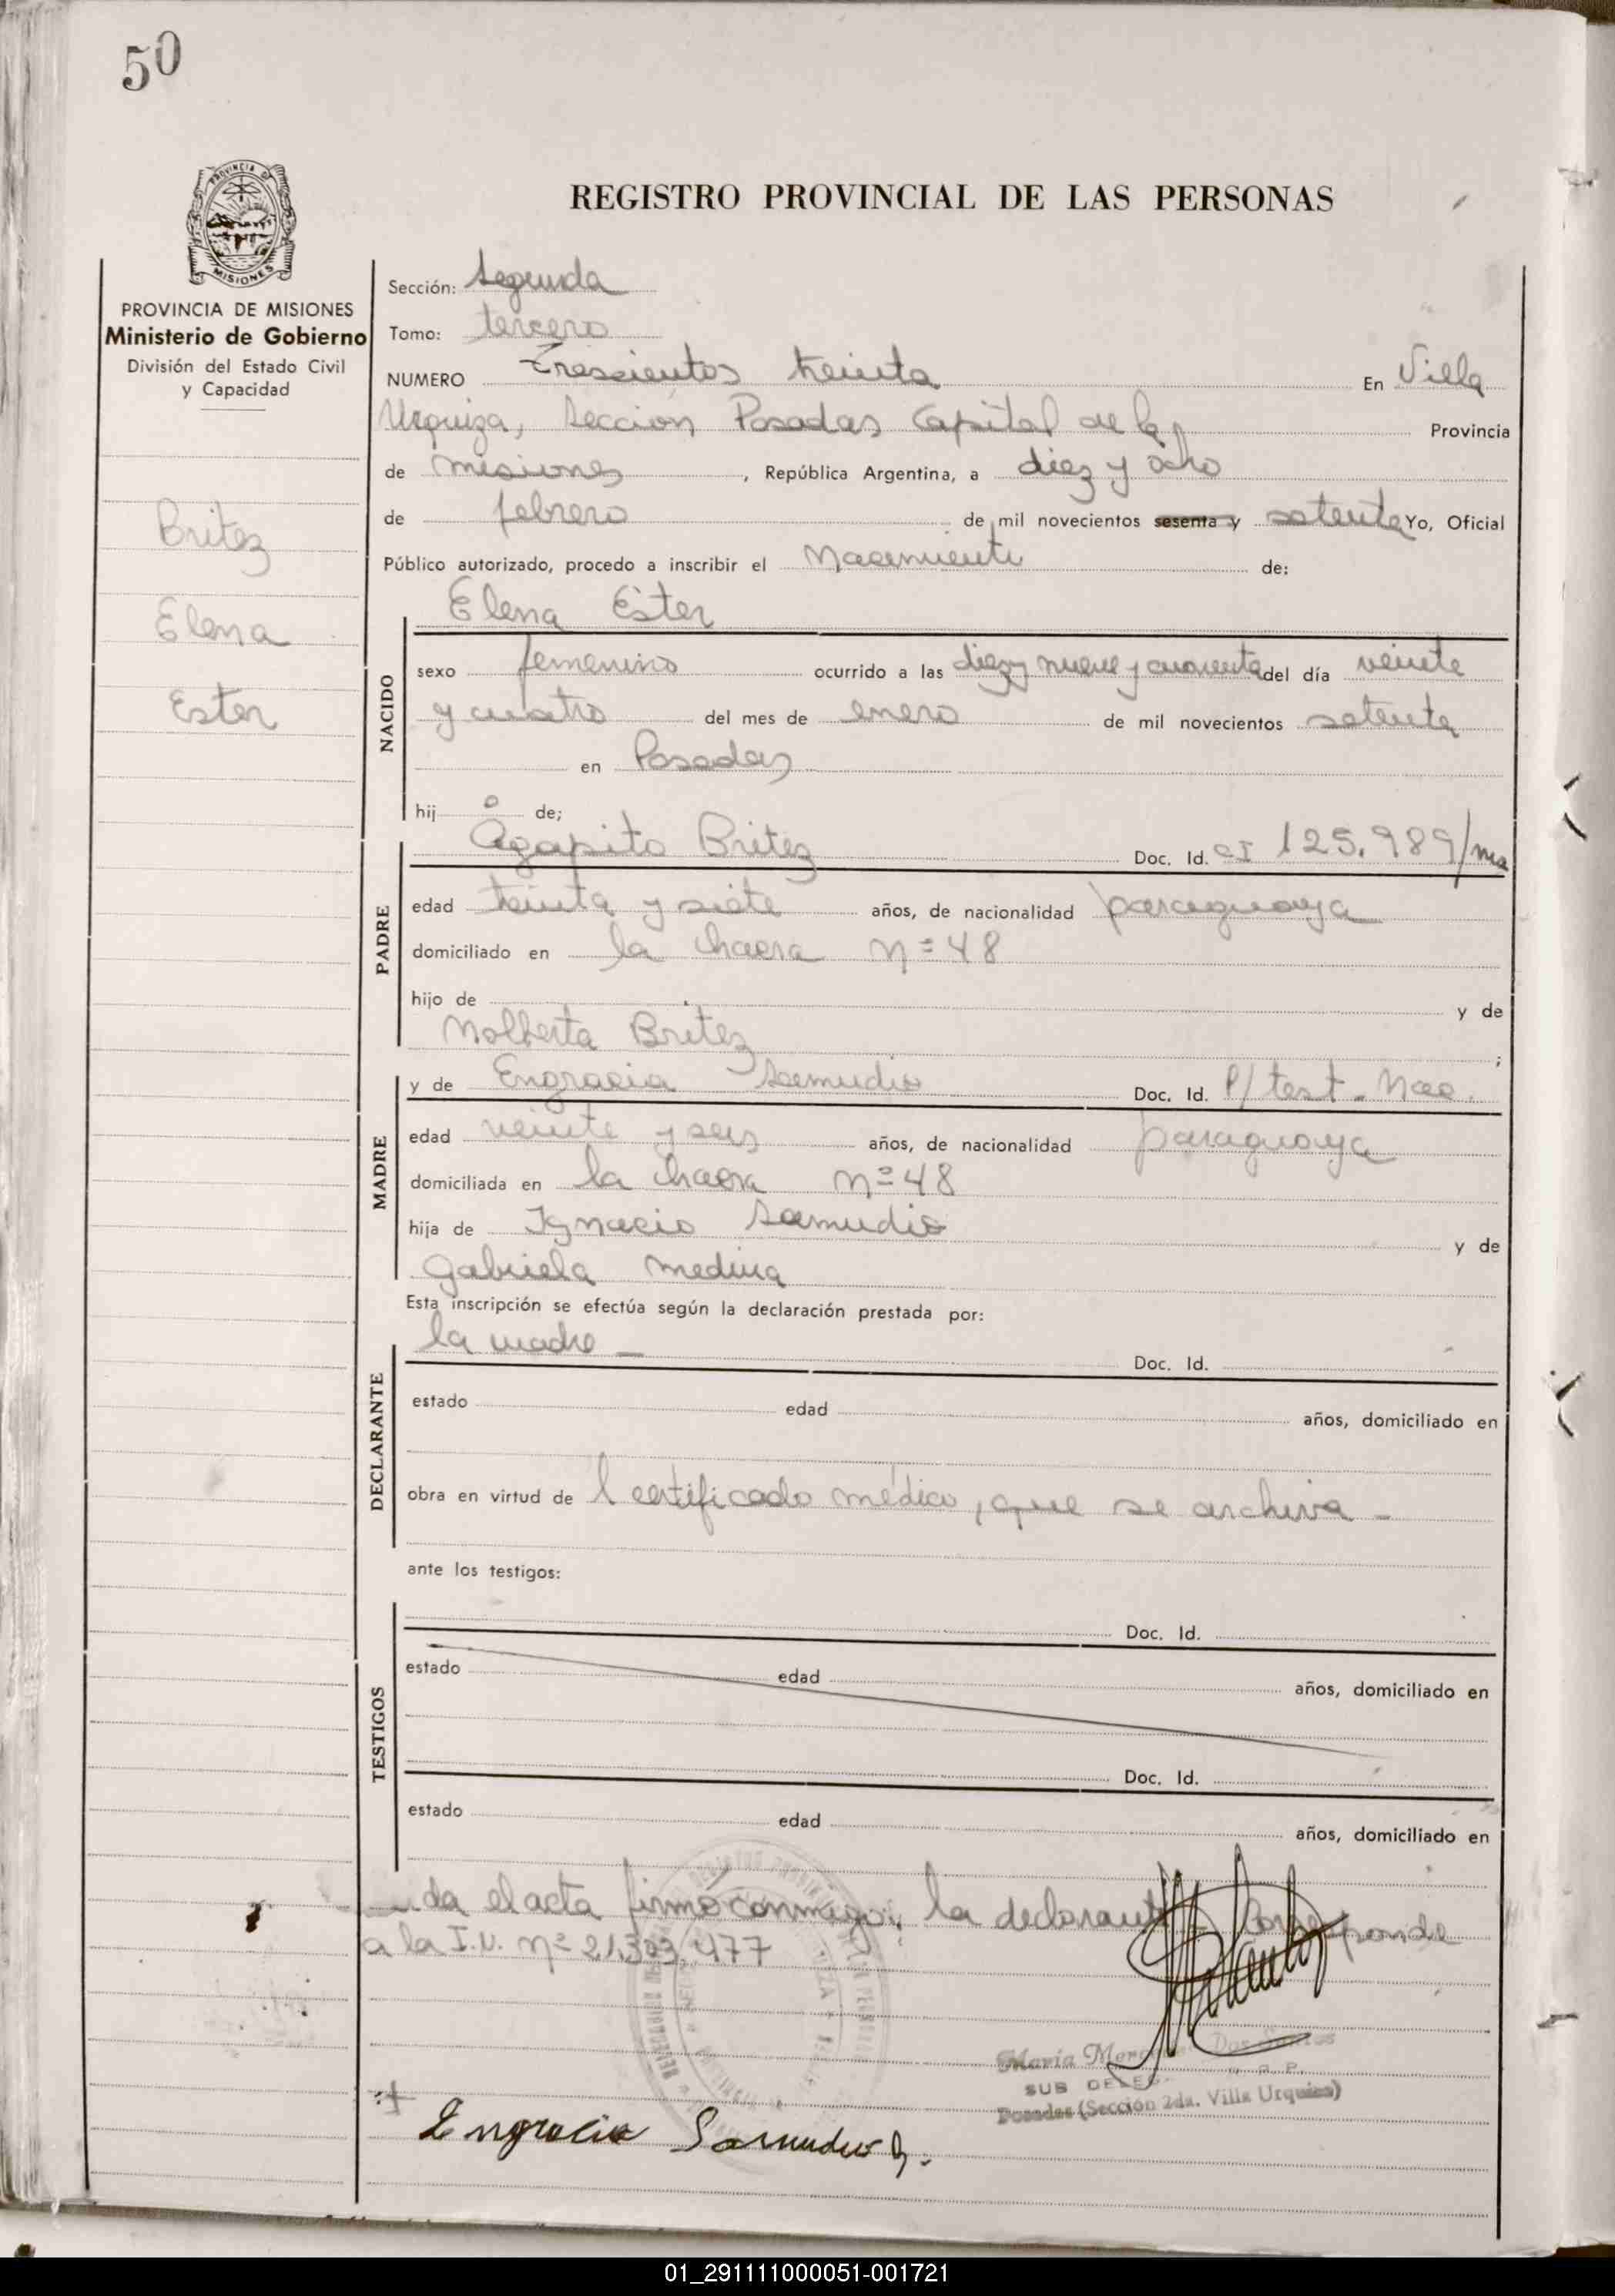 50
PROVINCIA DE MISIONES
Ministerio de Gobierno
División del Estado Civil
y Capacidad
Britez
Elena
Ester
REGISTRO PROVINCIAL DE LAS PERSONAS
Sección: Segunda
Tomo: tercero
NUMERO Trescientos treinta En Villa
Urquiza, Sección Posadas Capital de la Provincia
de misiones, República Argentina, a diez y ocho
de febrero de mil novecientos sesenta y setenta Yo, Oficial
Público autorizado, procedo a inscribir el Nacimiento de:
Elena Ester
NACIDO
sexo femenino ocurrido a las diez y nueve y cuarenta del día veinte
y cuatro del mes de enero de mil novecientos setenta
en Posadas
hij a de;
PADRE
Agapito Britez Doc. Id. CI 125.989/ma
edad treinta y siete años, de nacionalidad paraguaya
domiciliado en la chacra nº 48
hijo de y de
Nolberta Britez ;
MADRE
y de Engracia Samudio Doc. Id. P/ test. Nac.
edad veinte y seis años, de nacionalidad paraguaya
domiciliada en la chacra nº 48
hija de Ignacio Samudio y de
Gabriela Medina
Esta inscripción se efectúa según la declaración prestada por:
DECLARANTE
la madre — Doc. Id.
estado edad años, domiciliado en
obra en virtud de l certificado médico, que se archiva -
ante los testigos:
TESTIGOS
Doc. Id.
estado edad años, domiciliado en
Doc. Id.
estado edad años, domiciliado en
da el acta firmó conmigo; la declarante. Corresponde
a la I.U. nº 21.303.477
María Dos Santos
SUB DELEG. R. P.
Posadas (Sección 2da. Villa Urquiza)
Engracia Samudio G.
01_291111000051-001721